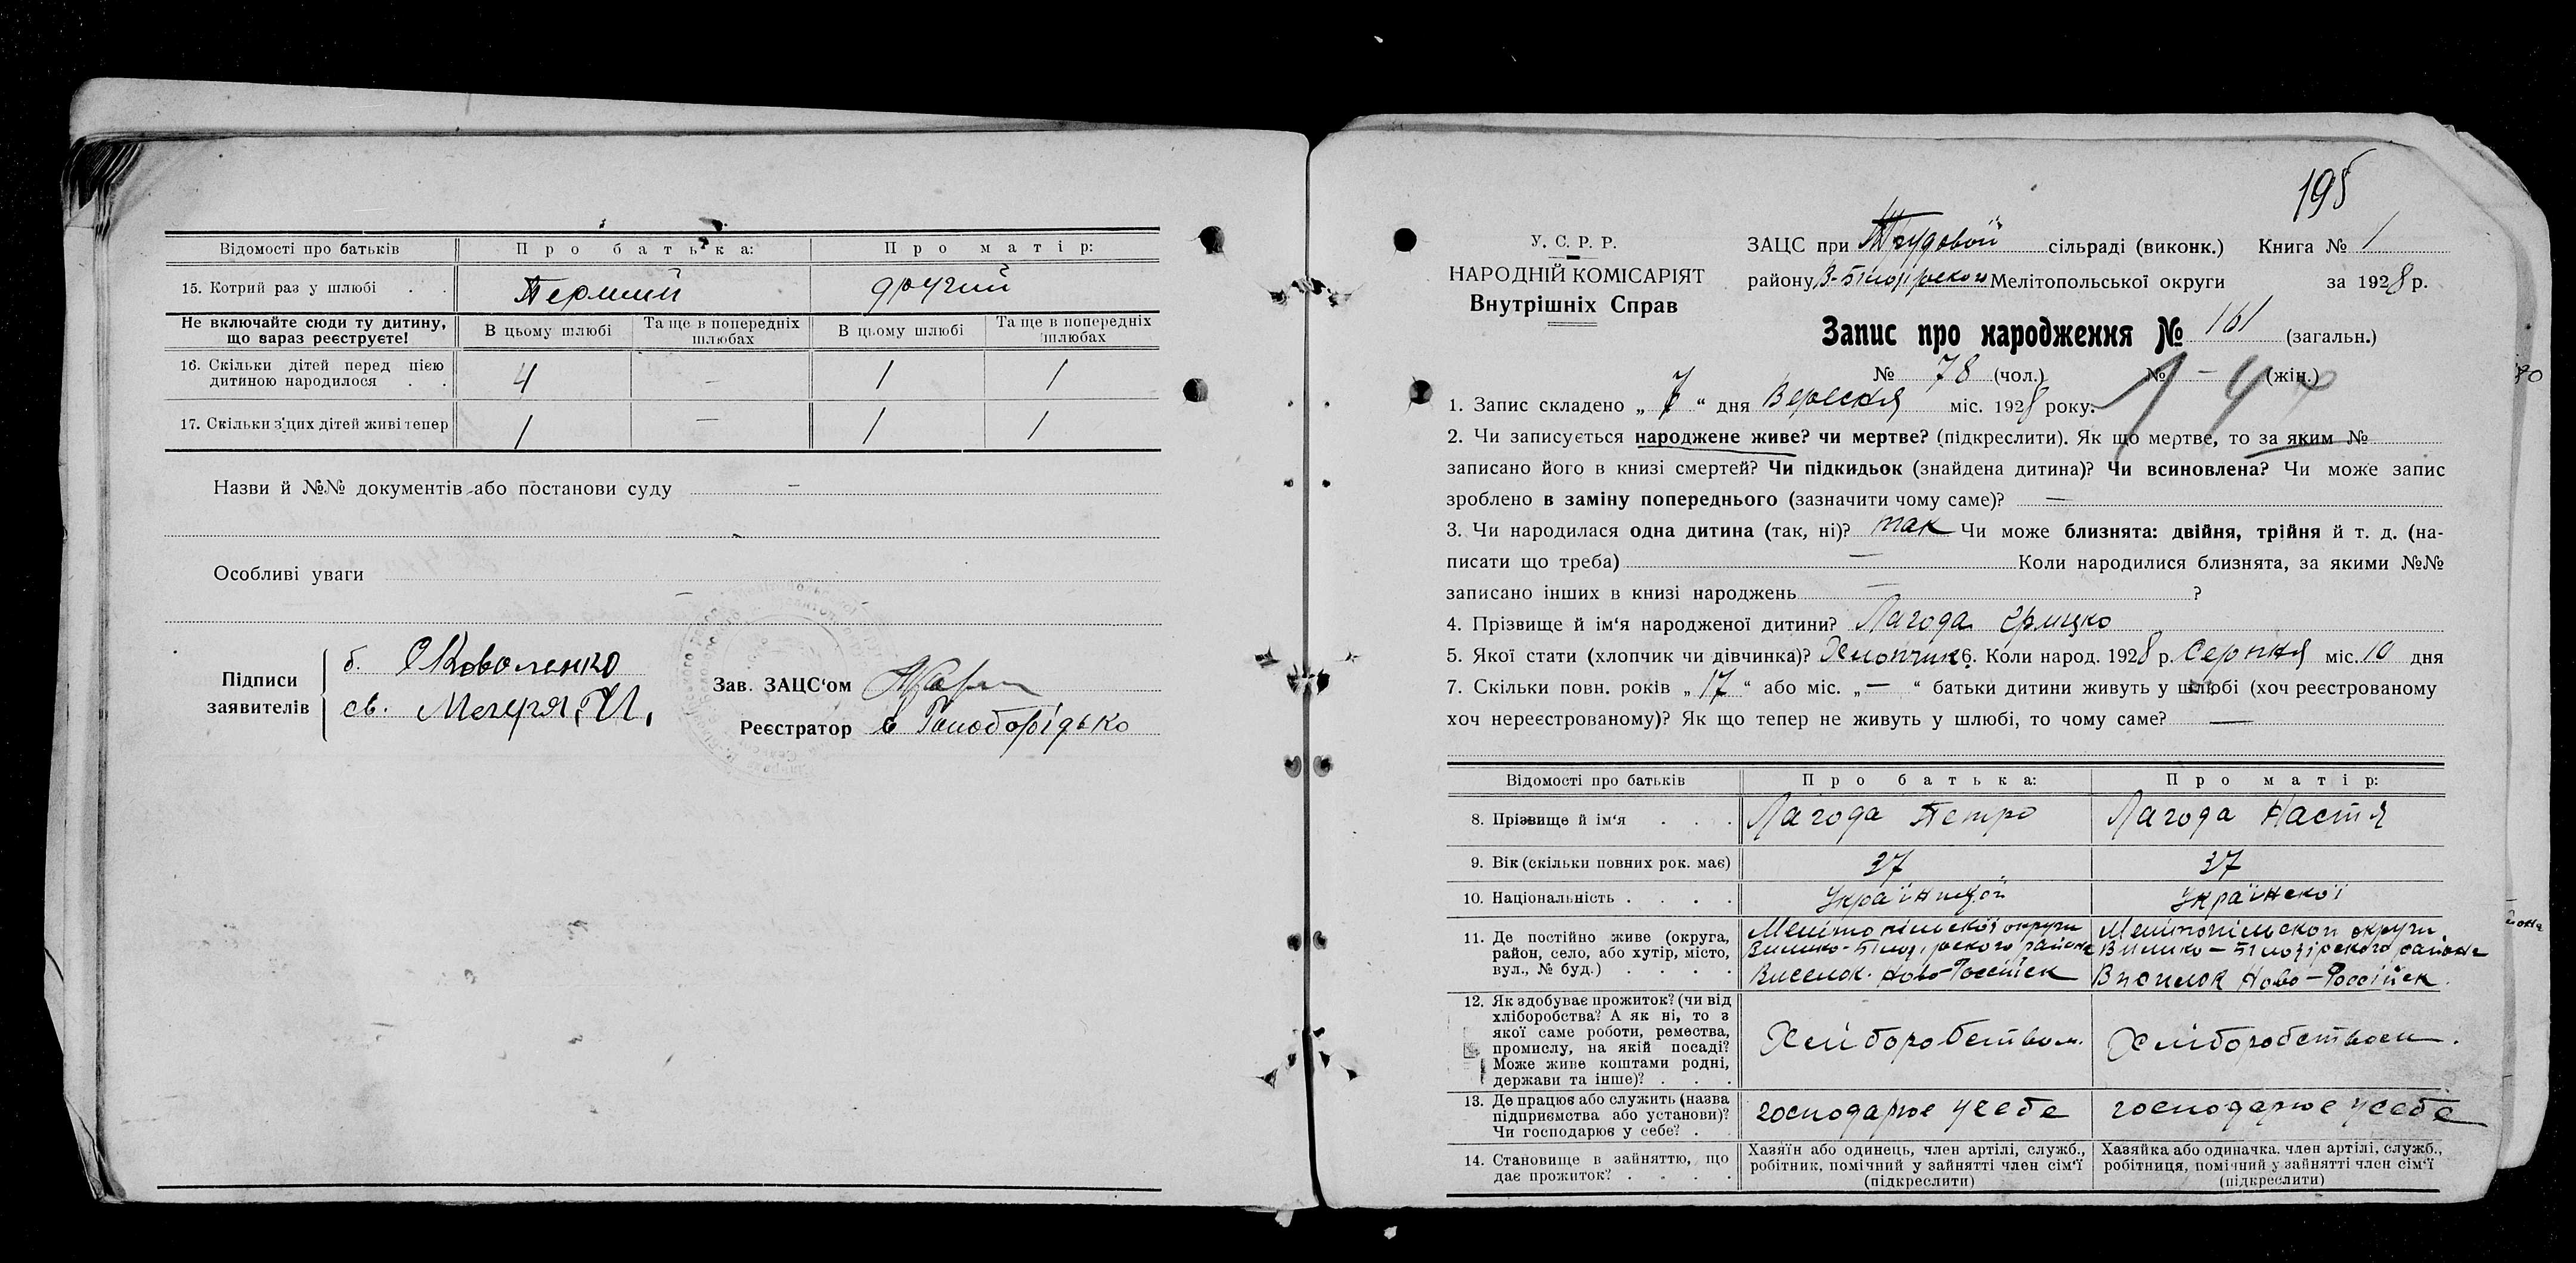 Відомості про батьків Про батька: Про матір:
15. Котрий раз у шлюбі . . Перший другий
Не включайте сюди ту дитину, що зараз реєструєте! В цьому шлюбі Та ще в попередніх шлюбах В цьому шлюбі Та ще в попередніх шлюбах
16. Скільки дітей перед цією
дитиною народилося . . 4 – 1 1
17. Скільки з'цих дітей живі тепер 1 – 1 1
Назви й №№ документів або постанови суду –
Особливі уваги –
Підписи заявителів
б. Коваленко
св. Мегеря, И.
Зав. ЗАЦС'ом
Реєстратор
195
У. С. Р. Р.
НАРОДНІЙ КОМІСАРІЯТ
Внутрішніх Справ
ЗАЦС при Трудовой сільраді (виконк.) Книга № 1
району В-Білозірского Мелітопольської округи за 1928 р.
Запис про народження № 161 (загальн.)
№ 78 (чол.) № – (жін.)
1. Запис складено „ 7 “ дня Вересня міс. 1928 року.
2. Чи записується народжене живе? чи мертве? (підкреслити). Як що мертве, то за яким №
записано його в книзі смертей? Чи підкидьок (знайдена дитина)? Чи всиновлена? Чи може запис
зроблено в заміну попереднього (зазначити чому саме)? —
3. Чи народилася одна дитина (так, ні)? так Чи може близнята: двійня, трійня й т. д. (на-
писати що треба) — Коли народилися близнята, за якими №№
записано інших в книзі народжень — ?
4. Прізвище й ім'я народженої дитини? Лагода Грицко
5. Якої стати (хлопчик чи дівчинка)? Хлопчик 6. Коли народ. 1928 р. Серпня міс. 10 дня
7. Скільки повн. років „ 17 “ або міс. „ — “ батьки дитини живуть у шлюбі (хоч реєстрованому
хоч нереєстрованому)? Як що тепер не живуть у шлюбі, то чому саме? —
Відомості про батьків Про батька: Про матір:
8. Прізвище й ім'я . . . Лагода Петро Лагода Настя
9. Вік (скільки повних рок. має) 37 37
10. Національність . . . . Української
11. Де постійно живе (округа,
район, село, або хутір, місто,
вул., № буд.) . . . .
Мелітопільскої округи
Велико-Білозірского района
Виселок Ново-Россійск
Мелітопільскои округи
Велико-Білозірского района
Виселок Ново-Россійск
12. Як здобуває прожиток? (чи від
хліборобства? А як ні, то з
якої саме роботи, ремества,
промислу, на якій посаді?
Може живе коштами родні,
держави та інше)? . . .
Хліборобством. Хліборобством.
13. Де працює або служить (назва
підприємства або установи)?
Чи господарює у себе? .
господарює у себе господарює у себе
14. Становище в зайняттю, що
дає прожиток? . . . .
Хазяїн або одинець, член артілі, служб.,
робітник, помічний у зайнятті член сім'ї
(підкреслити)
Хазяйка або одиначка, член артілі, служб.,
робітниця, помічний у зайнятті член сім'ї
(підкреслити)